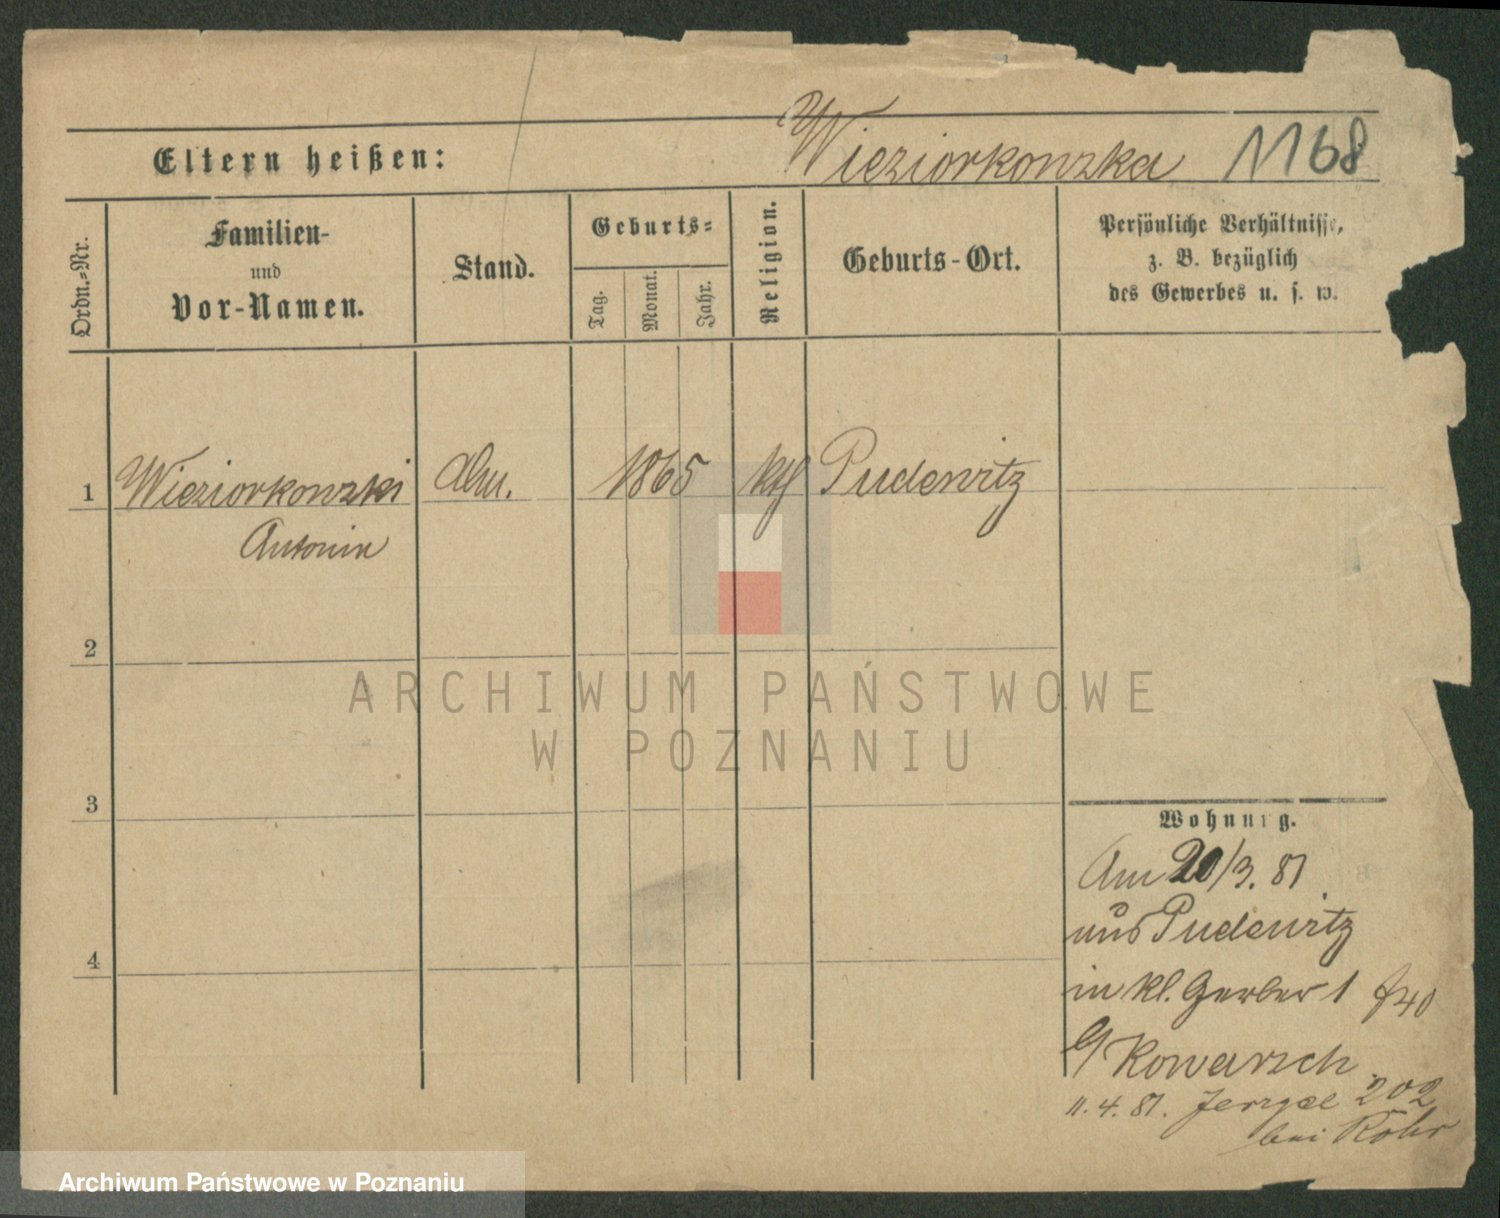 Eltern heißen: Wieziorkowska 1168
Ordn.-Nr.
Familien-
und
Vor-Namen.
Stand.
Geburts-
Tag.
Monat.
Jahr.
Religion.
Geburts-Ort.
Persönliche Verhältnisse,
z. B. bezüglich
des Gewerbes u. s. w.
1 Wieziorkowski 1865 kth Pudewitz
Antonin
2
ARCHIWUM PAŃSTWOWE
W POZNANIU
3
Wohnung.
Am 20/3. 81
aus Pudewitz
in kl. Gerber 1
4
b/ Kowarsch
11. 4. 81. 202
bei Rohr
Archiwum Państwowe w Poznaniu